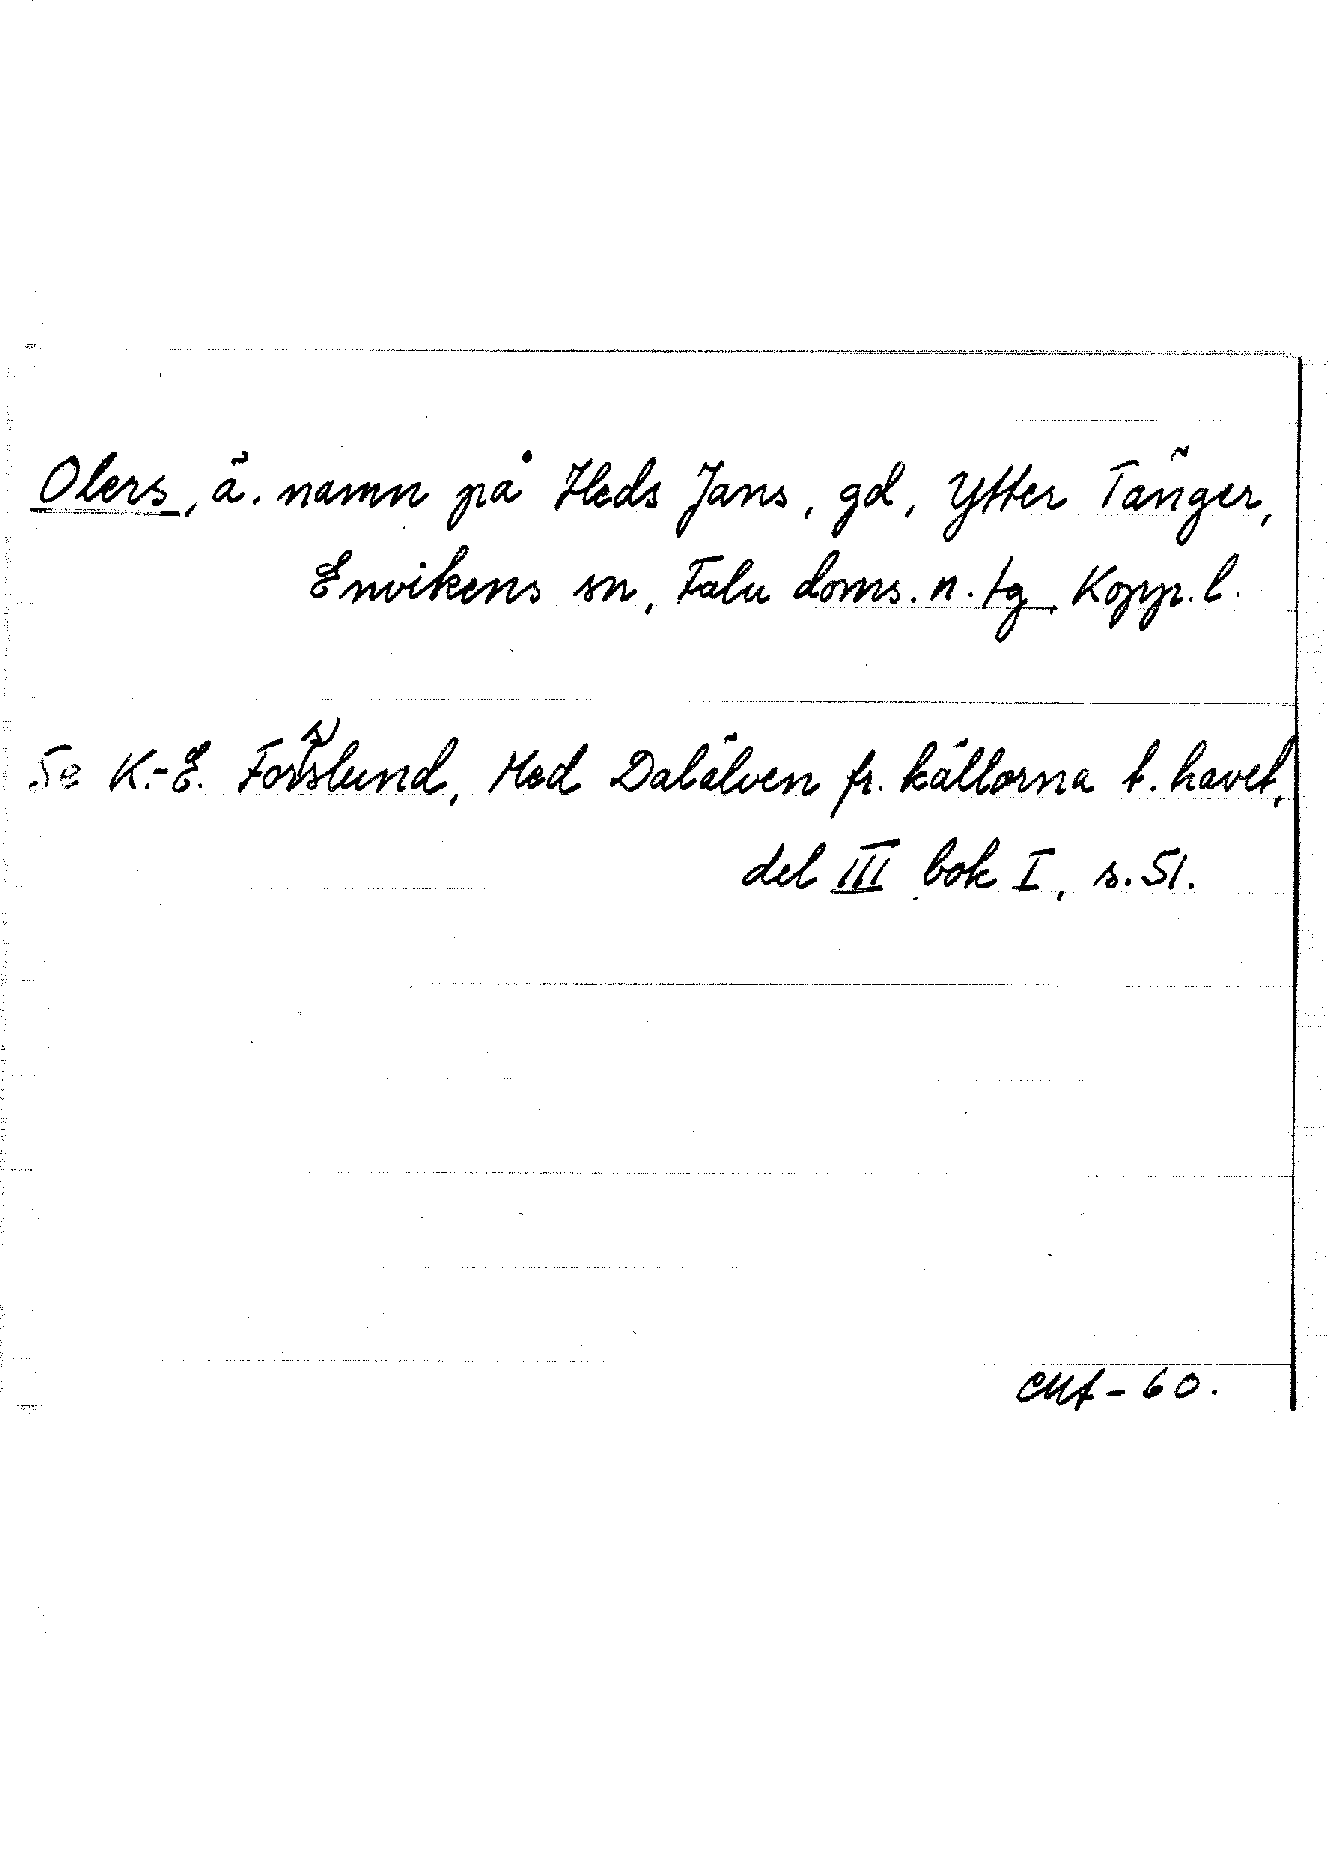 Olers, ä. namn på Heds Jans, gd, Ytter Tänger,
Envikens sn, Falu doms. n. tg, Kopp. l.
Se K.-E. Forsslund, Med Dalälven fr. källorna t. havet,
del III bok I, s. 51.
CMf-60.